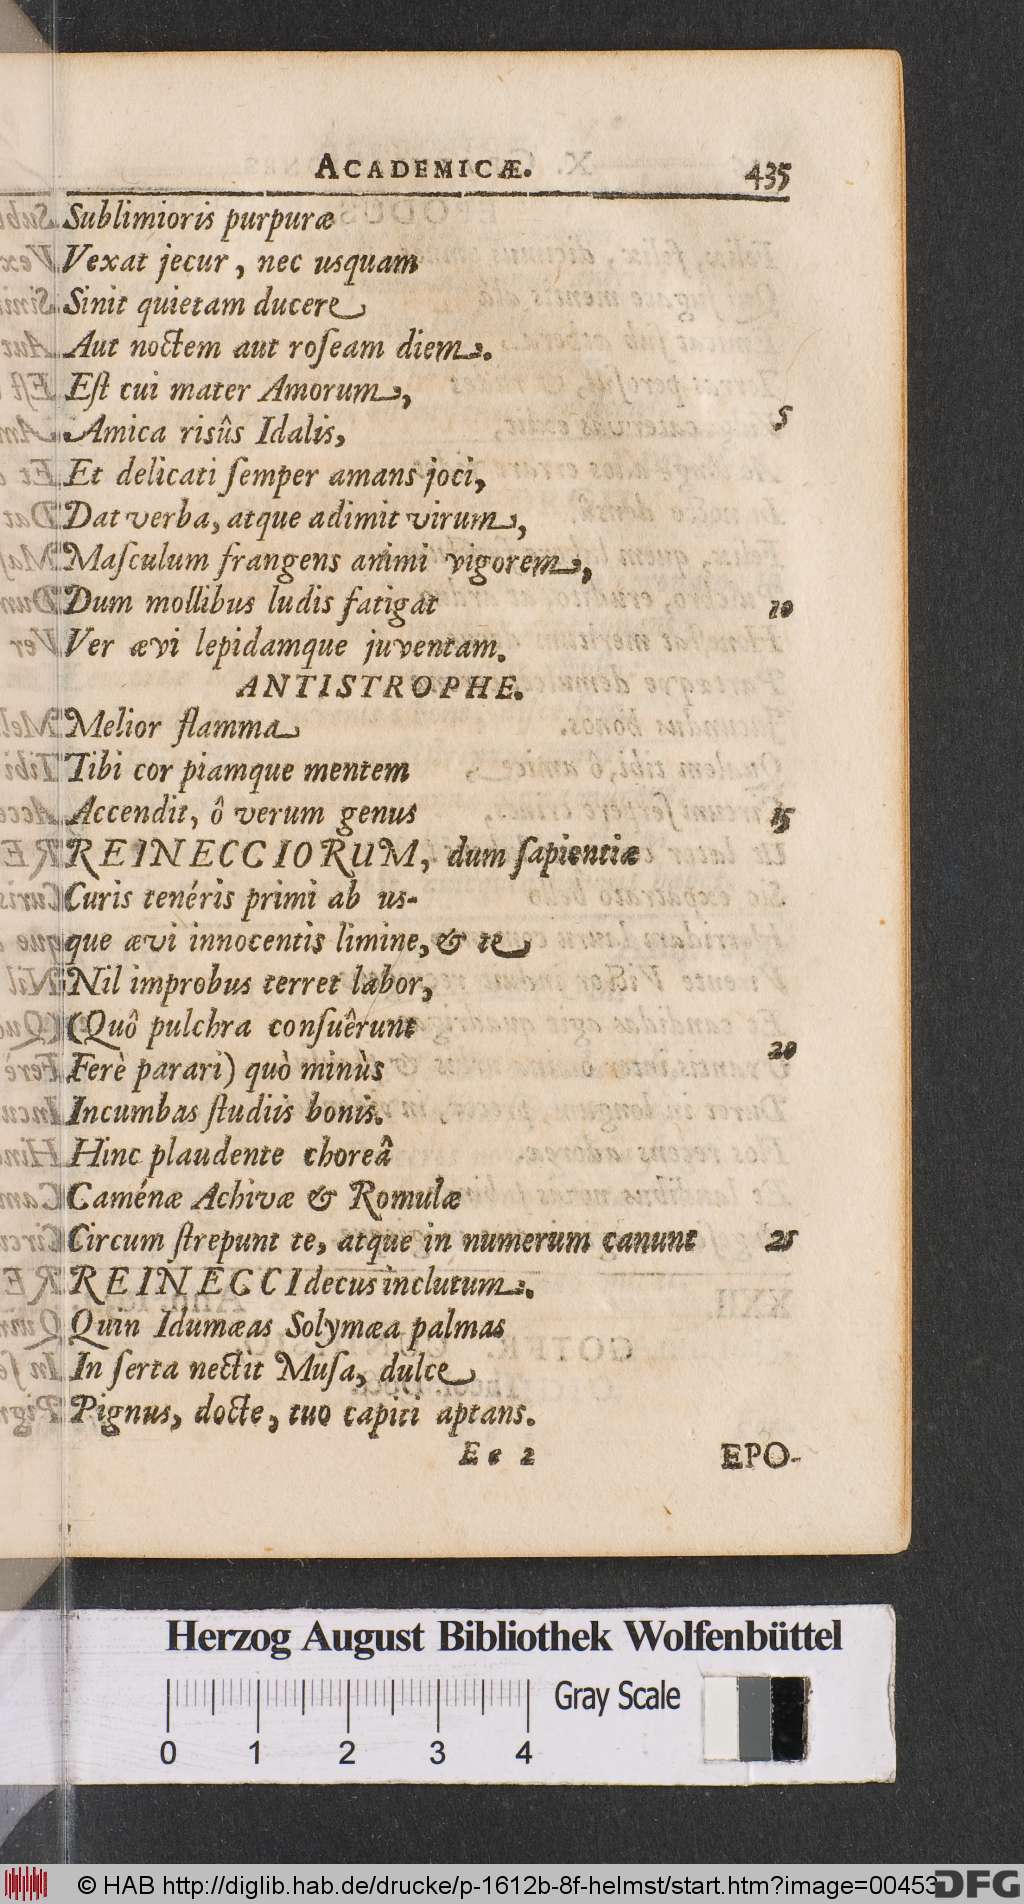 ACADEMICÆ. 435
Sublimioris purpuræ
Vexat jecur, nec usquam
Sinit quietam ducere
Aut noctem aut roſeam diem.
Eſt cui mater Amorum,
Amica risûs Idalis, 5
Et delicati ſemper amans joci,
Dat verba, atque adimit virum,
Maſculum frangens animi vigorem,
Dum mollibus ludis fatigat 10
Ver ævi lepidamque juventam.
ANTISTROPHE.
Melior flamma
Tibi cor piamque mentem
Accendit, ô verum genus 15
REINECCIORUM, dum ſapientiæ
Curis tenéris primi ab us-
que ævi innocentis limine, & te
Nil improbus terret labor,
(Quô pulchra conſuêrunt 20
Ferè parari) quò minùs
Incumbas ſtudiis bonis.
Hinc plaudente choreâ
Caménæ Achivæ & Romulæ
Circum ſtrepunt te, atque in numerum canunt 25
REINECCI decus inclutum.
Quin Idumæas Solymæa palmas
In ſerta nectit Muſa, dulce
Pignus, docte, tuo capiti aptans.
Ee 2 EPO-
Herzog August Bibliothek Wolfenbüttel
Gray Scale
0 1 2 3 4
© HAB http://diglib.hab.de/drucke/p-1612b-8f-helmst/start.htm?image=00453
DFG